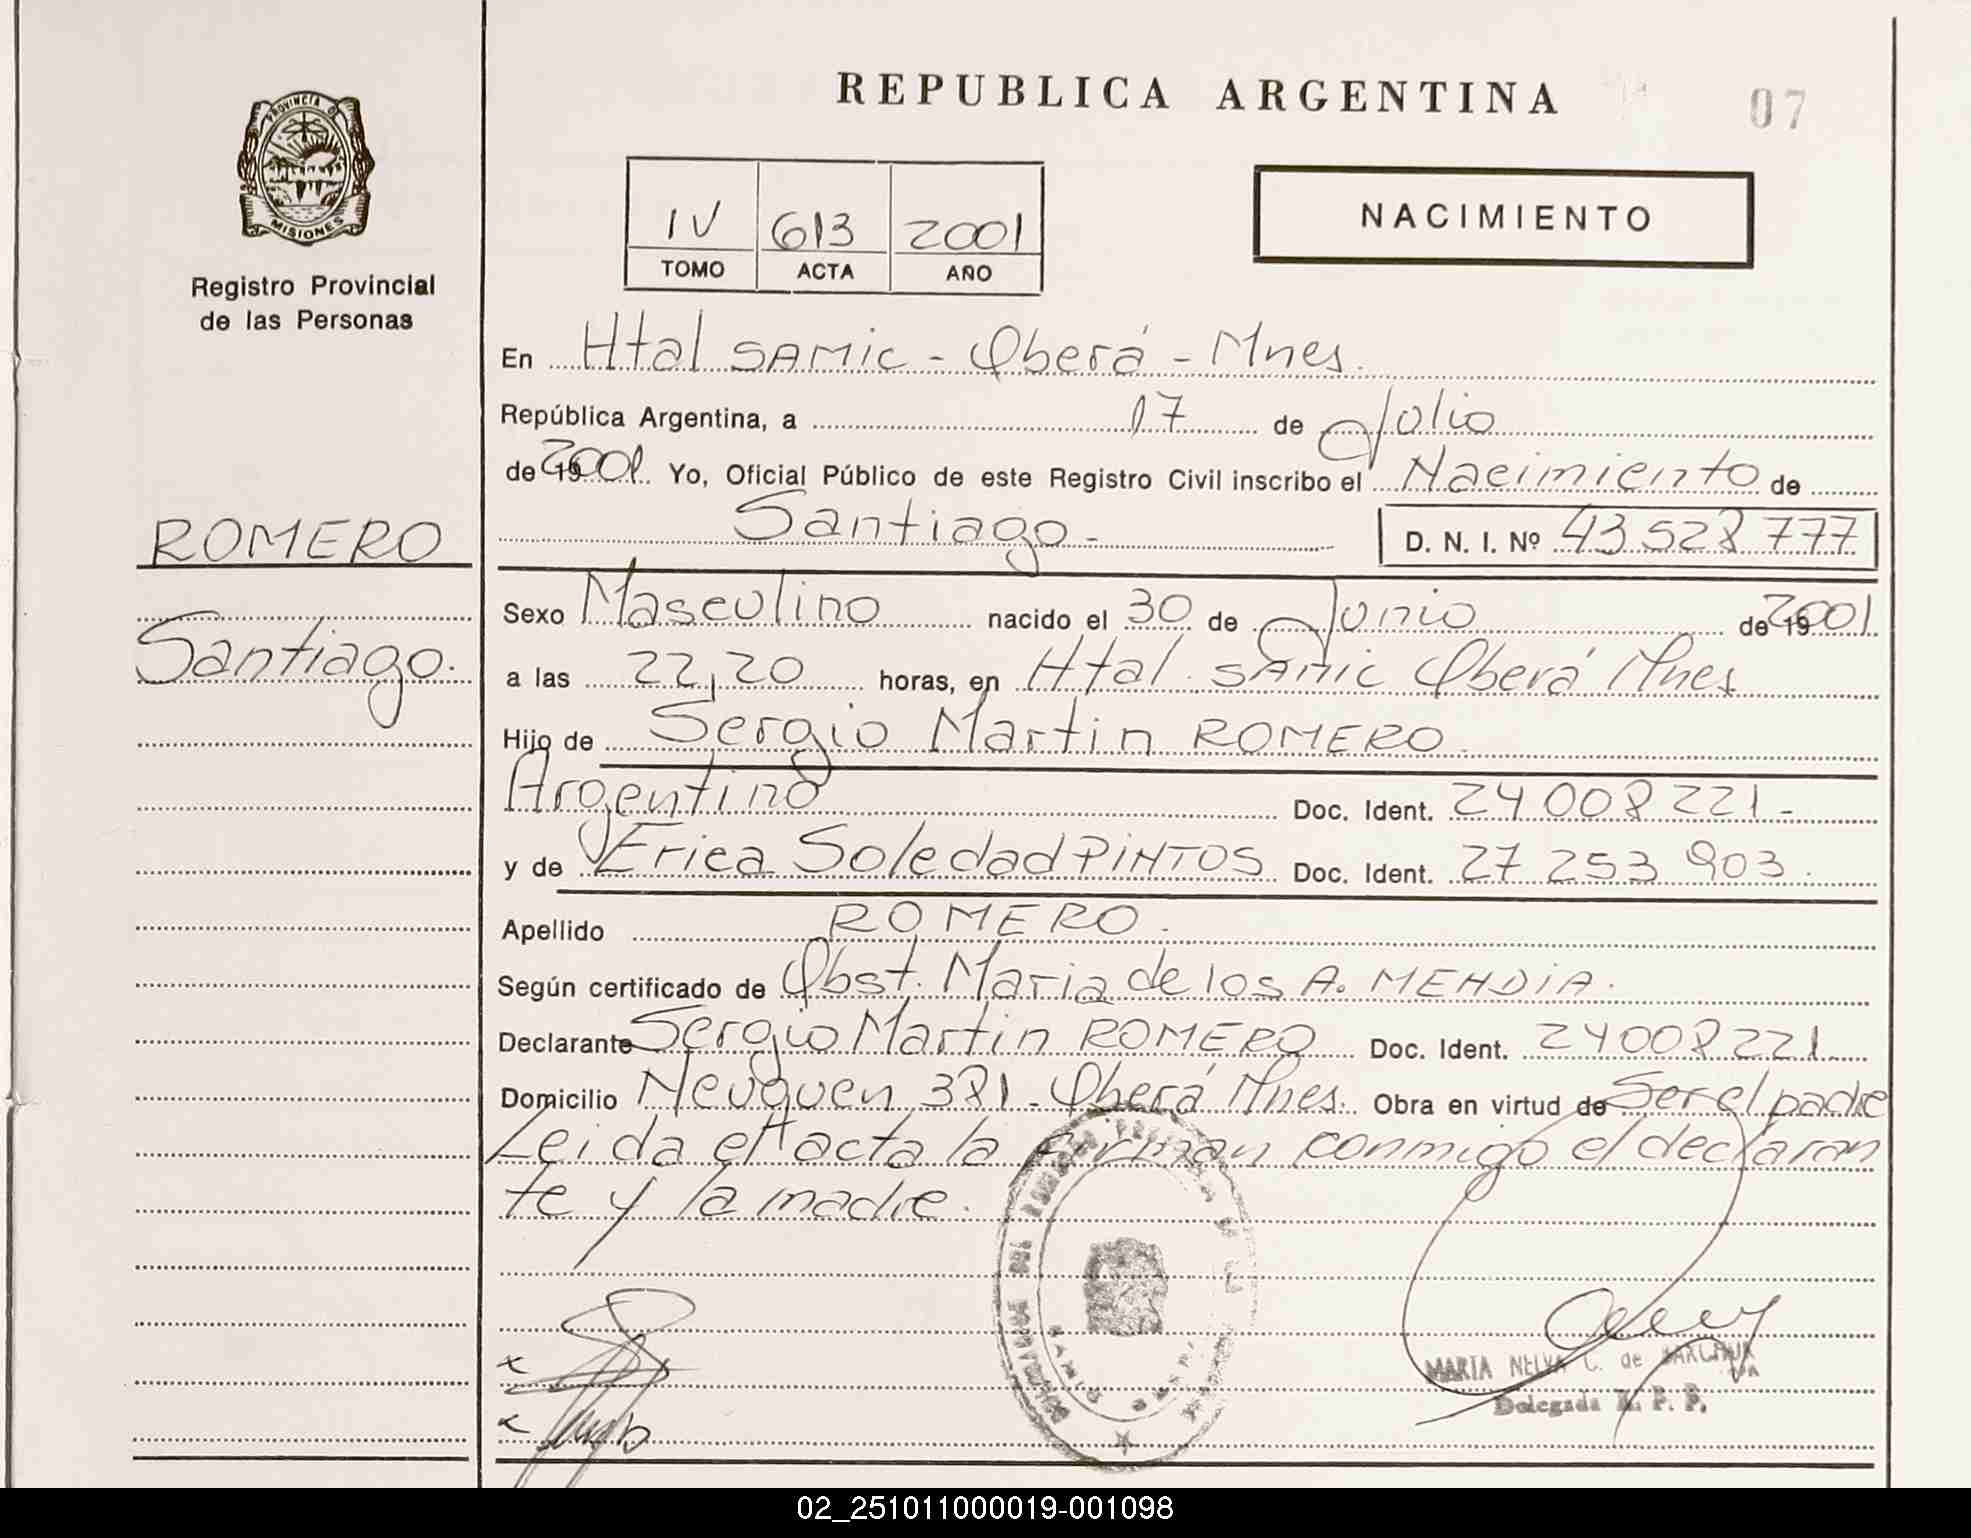 REPUBLICA ARGENTINA
07
PROVINCIA DE
MISIONES
Registro Provincial
de las Personas
IV 613 2001
TOMO ACTA AÑO
NACIMIENTO
En Htal SAMIC - Oberá - Mnes.
República Argentina, a 17 de Julio
de 2001. Yo, Oficial Público de este Registro Civil inscribo el Nacimiento de
Santiago - D. N. I. Nº 43 528 777
ROMERO
Santiago.
Sexo Masculino nacido el 30 de Junio de 2001.
a las 22,20 horas, en Htal. SAMIC Oberá Mnes
Hijo de Sergio Martin ROMERO.
Argentino Doc. Ident. 24 008 221 -
y de Erica Soledad PINTOS Doc. Ident. 27 253 903.
Apellido ROMERO.
Según certificado de Obst. Maria de los A. MENDIA.
Declarante Sergio Martin ROMERO Doc. Ident. 24 008 221
Domicilio Neuquen 381 - Oberá Mnes. Obra en virtud de Ser el padre
Leida el acta la firman conmigo el declaran
te y la madre.
x
x
MARIA NELVA C. de
Delegada R. P. P.
02_251011000019-001098